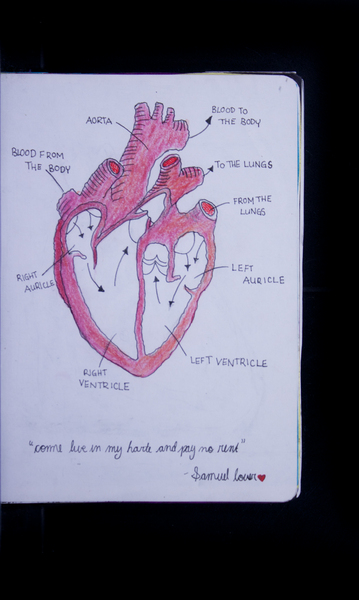 BLOOD TO
THE BODY
AORTA
BLOOD FROM
THE BODY
TO THE LUNGS
FROM THE
LUNGS
RIGHT
AURICLE
LEFT
AURICLE
LEFT VENTRICLE
RIGHT
VENTRICLE
"come live in my harte and pay no rent"
- Samuel lover